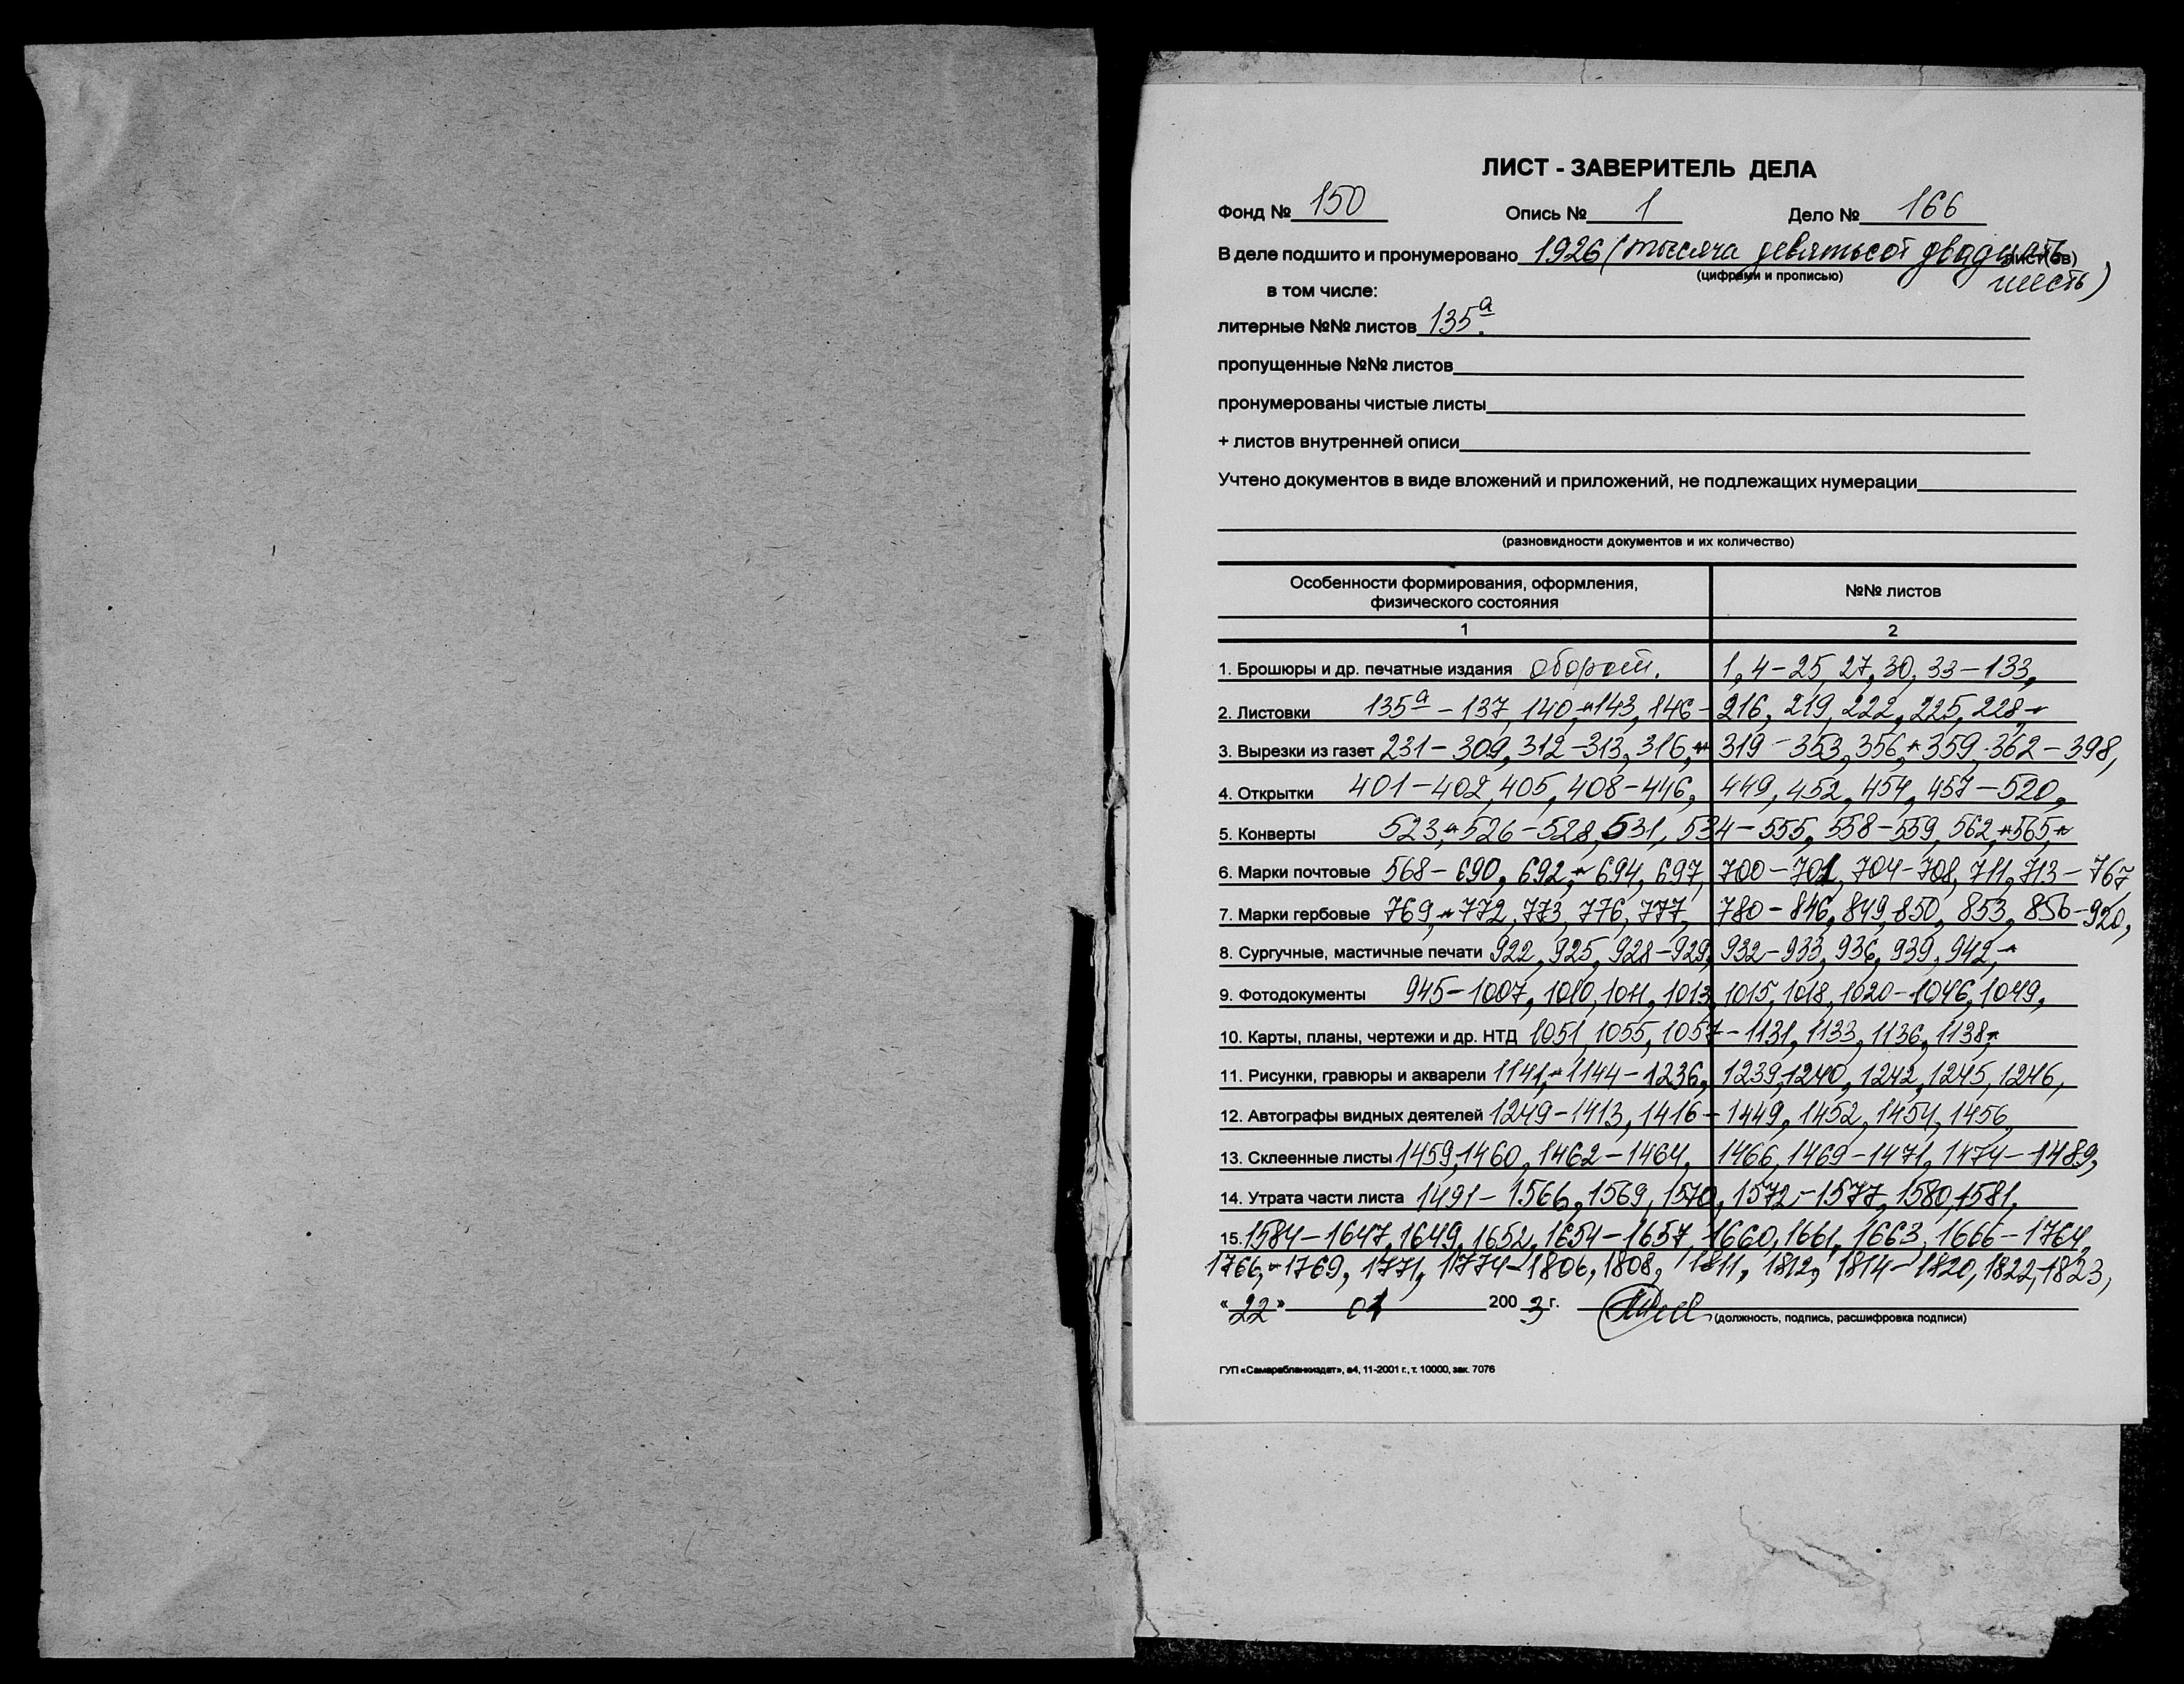 ЛИСТ - ЗАВЕРИТЕЛЬ ДЕЛА
Фонд № 150 Опись № 1 Дело № 166
В деле подшито и пронумеровано 1926 (тысяча девятьсот двадцать лист(ов)
(цифрами и прописью) шесть)
в том числе:
литерные №№ листов 135а.
пропущенные №№ листов
пронумерованы чистые листы
+ листов внутренней описи
Учтено документов в виде вложений и приложений, не подлежащих нумерации
(разновидности документов и их количество)
Особенности формирования, оформления, физического состояния №№ листов
1 2
1. Брошюры и др. печатные издания оборот. 1, 4-25, 27, 30, 33-133,
2. Листовки 135а - 137, 140, 143, 146 - 216, 219, 222, 225, 228
3. Вырезки из газет 231-309, 312-313, 316, 319-353, 356, 359, 362-398,
4. Открытки 401-402, 405, 408-446, 449, 452, 454, 457-520,
5. Конверты 523, 526-528, 531, 534-555, 558-559, 562, 565,
6. Марки почтовые 568-690, 692, 694, 697, 700-701, 704-708, 711, 713-767,
7. Марки гербовые 769, 772, 773, 776, 777, 780-846, 849, 850, 853, 856-920,
8. Сургучные, мастичные печати 922, 925, 928-929, 932-933, 936, 939, 942,
9. Фотодокументы 945-1007, 1010, 1011, 1013, 1015, 1018, 1020-1046, 1049,
10. Карты, планы, чертежи и др. НТД 1051, 1055, 1057-1131, 1133, 1136, 1138,
11. Рисунки, гравюры и акварели 1141, 1144-1236, 1239, 1240, 1242, 1245, 1246,
12. Автографы видных деятелей 1249-1413, 1416-1449, 1452, 1454, 1456,
13. Склеенные листы 1459, 1460, 1462-1464, 1466, 1469-1471, 1474-1489,
14. Утрата части листа 1491-1566, 1569, 1570, 1572-1577, 1580, 1581,
15. 1584-1647, 1649, 1652, 1654-1657, 1660, 1661, 1663, 1666-1764,
1766, 1769, 1771, 1774-1806, 1808, 1811, 1812, 1814-1820, 1822, 1823,
«22» 01 2003 г.
(должность, подпись, расшифровка подписи)
ГУП «Самарабланкиздат», а4, 11-2001 г., т. 10000, зак. 7076